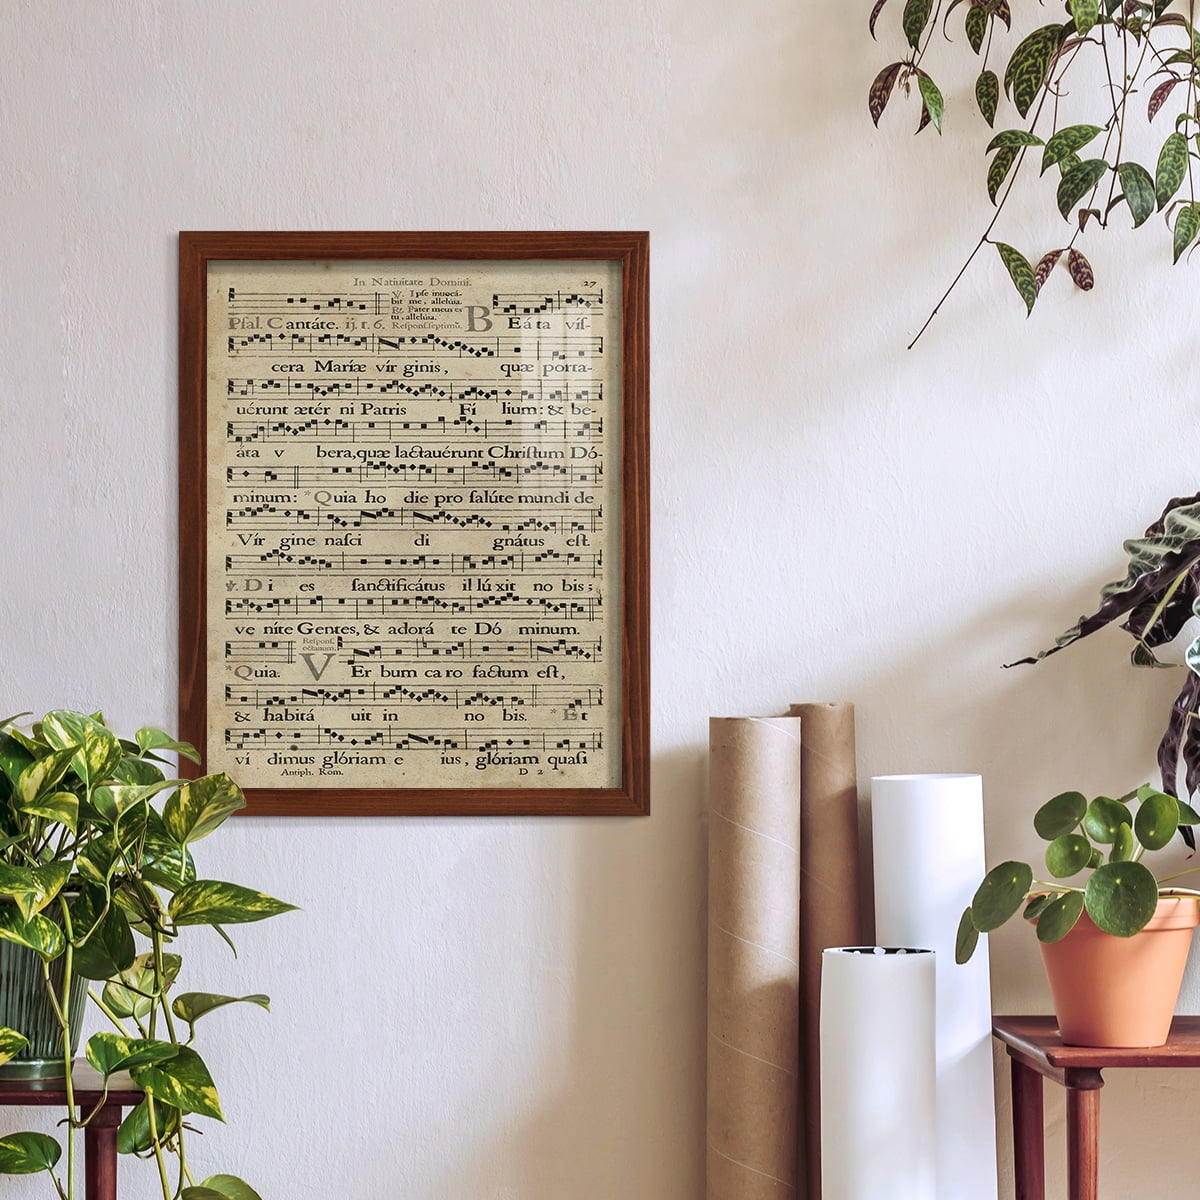 In Natiuitate Domini. 27
V. Ipse inuocá-
bit me, allelúia.
R. Pater meus es
tu, allelúia.
Psal. Cantáte. ij. t. 6. Respons. septimũ. B Eá ta vís-
cera Maríæ vír ginis, quæ porta-
uérunt ætér ni Patris Fí lium: & be-
áta v bera, quæ lactauérunt Christum Dó-
minum: * Quia ho die pro salúte mundi de
Vír gine nasci di gnátus est
℣. D i es sanctificátus il lú xit no bis;
ve níte Gentes, & adorá te Dó minum.
Respons.
octauum.
* Quia. V Er bum ca ro factum est,
& habitá uit in no bis. * Et
ví dimus glóriam e ius, glóriam quasi
Antiph. Rom. D 2